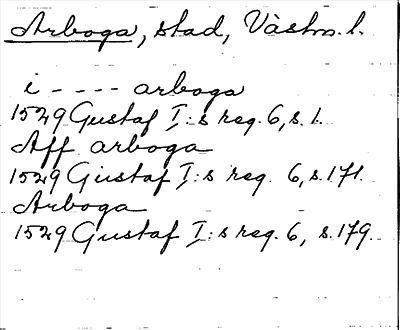 Arboga, stad, Västm. l.
i - - - - arboga
1529 Gustaf I:s reg. 6, s. 1.
Aff arboga
1529 Gustaf I:s reg. 6, s. 171.
Arboga
1529 Gustaf I:s reg. 6, s. 179.